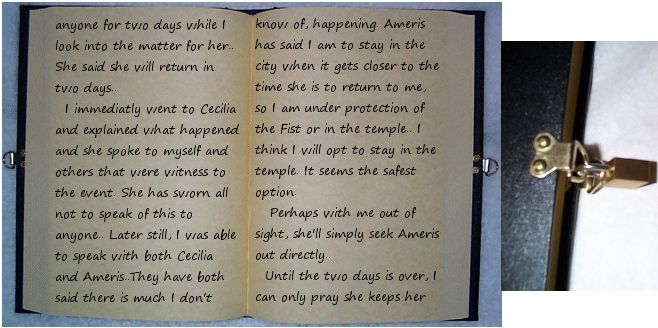 anyone for two days while I
look into the matter for her..
She said she will return in
two days..
I immediatly went to Cecilia
and explained what happened
and she spoke to myself and
others that were witness to
the event. She has sworn all
not to speak of this to
anyone.. Later still, I was able
to speak with both Cecilia
and Ameris..They have both
said there is much I don't
know of, happening. Ameris
has said I am to stay in the
city when it gets closer to the
time she is to return to me,
so I am under protection of
the Fist or in the temple.. I
think I will opt to stay in the
temple. It seems the safest
option.
Perhaps with me out of
sight, she'll simply seek Ameris
out directly..
Until the two days is over, I
can only pray she keeps her